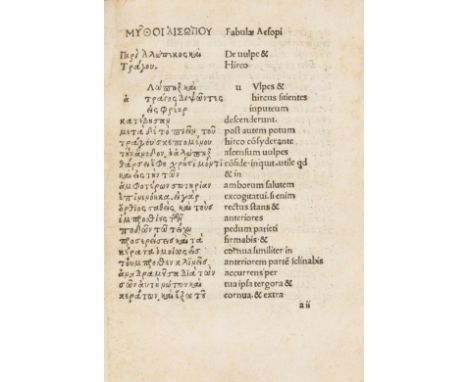 ΜΥΘΟΙ ΑΙΣΩΠΟΥ Fabulæ Aesopi
Περὶ ἀλώπικος καὶ De uulpe &
Τράγου. Hirco
Λώπηξ καὶ u Vlpes &
ἀ τράγος διψῶντις hircus sitientes
ἐς φρίαρ inputeum
κατίβησαν descenderunt.
μετὰ δὲ τὸ πιεῖν, τοῦ post autem potum
τράγου σκεπομίνου hirco cōsyderante
τὴν ἄνοδον, ἡ ἀλώπηξ ascensum uulpes
θάρσει ἔφη χρήσιμόν τι cōfide·inquit.utile qd
καὶ ἐς τὴν τῶν & in
ἀμφοτίρων σωτηρίαν amborum salutem
ἐπινενόηκα. εἰ γὰρ excogitatui.si enim
ὄρθιος σταθεὶς, καὶ τοὺς rectus stans &
ἐμπροσθίους τῶν anteriores
ποδῶν τῷ τοίχῳ pedum parieti
προσερείσεις καὶ τὰ firmabis·&
κίρατα ὁμοίως εἰς cornua similiter in
τοὔμπροσθεν κλινεῖς, anteriorem partē iclinabis
ἀναδραμοῦσα διὰ τῶν accurrens per
σῶν αὐτὴ νώτων καὶ tua ipsa tergora &
κεράτων, καὶ ἔξω τοῦ cornua.& extra
a ii